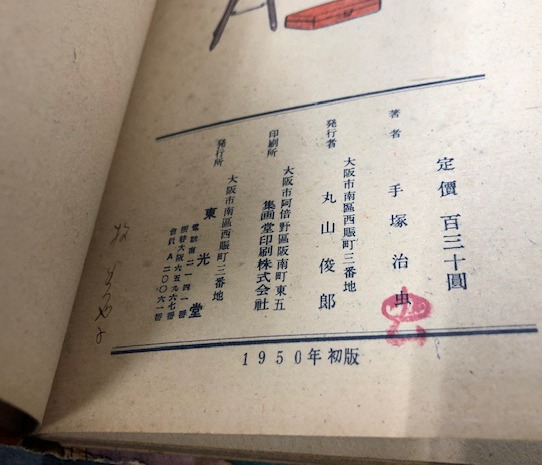 定價 百三十圓
著者 手塚治虫
発行者 大阪市南區西賑町三番地
丸山俊郎
印刷所 大阪市阿倍野區阪南町東五
集画堂印刷株式会社
発行所 大阪市南區西賑町三番地
東光堂
電話南二一四一番
振替大阪六五九六七番
会員A二〇〇六一番
1950年初版